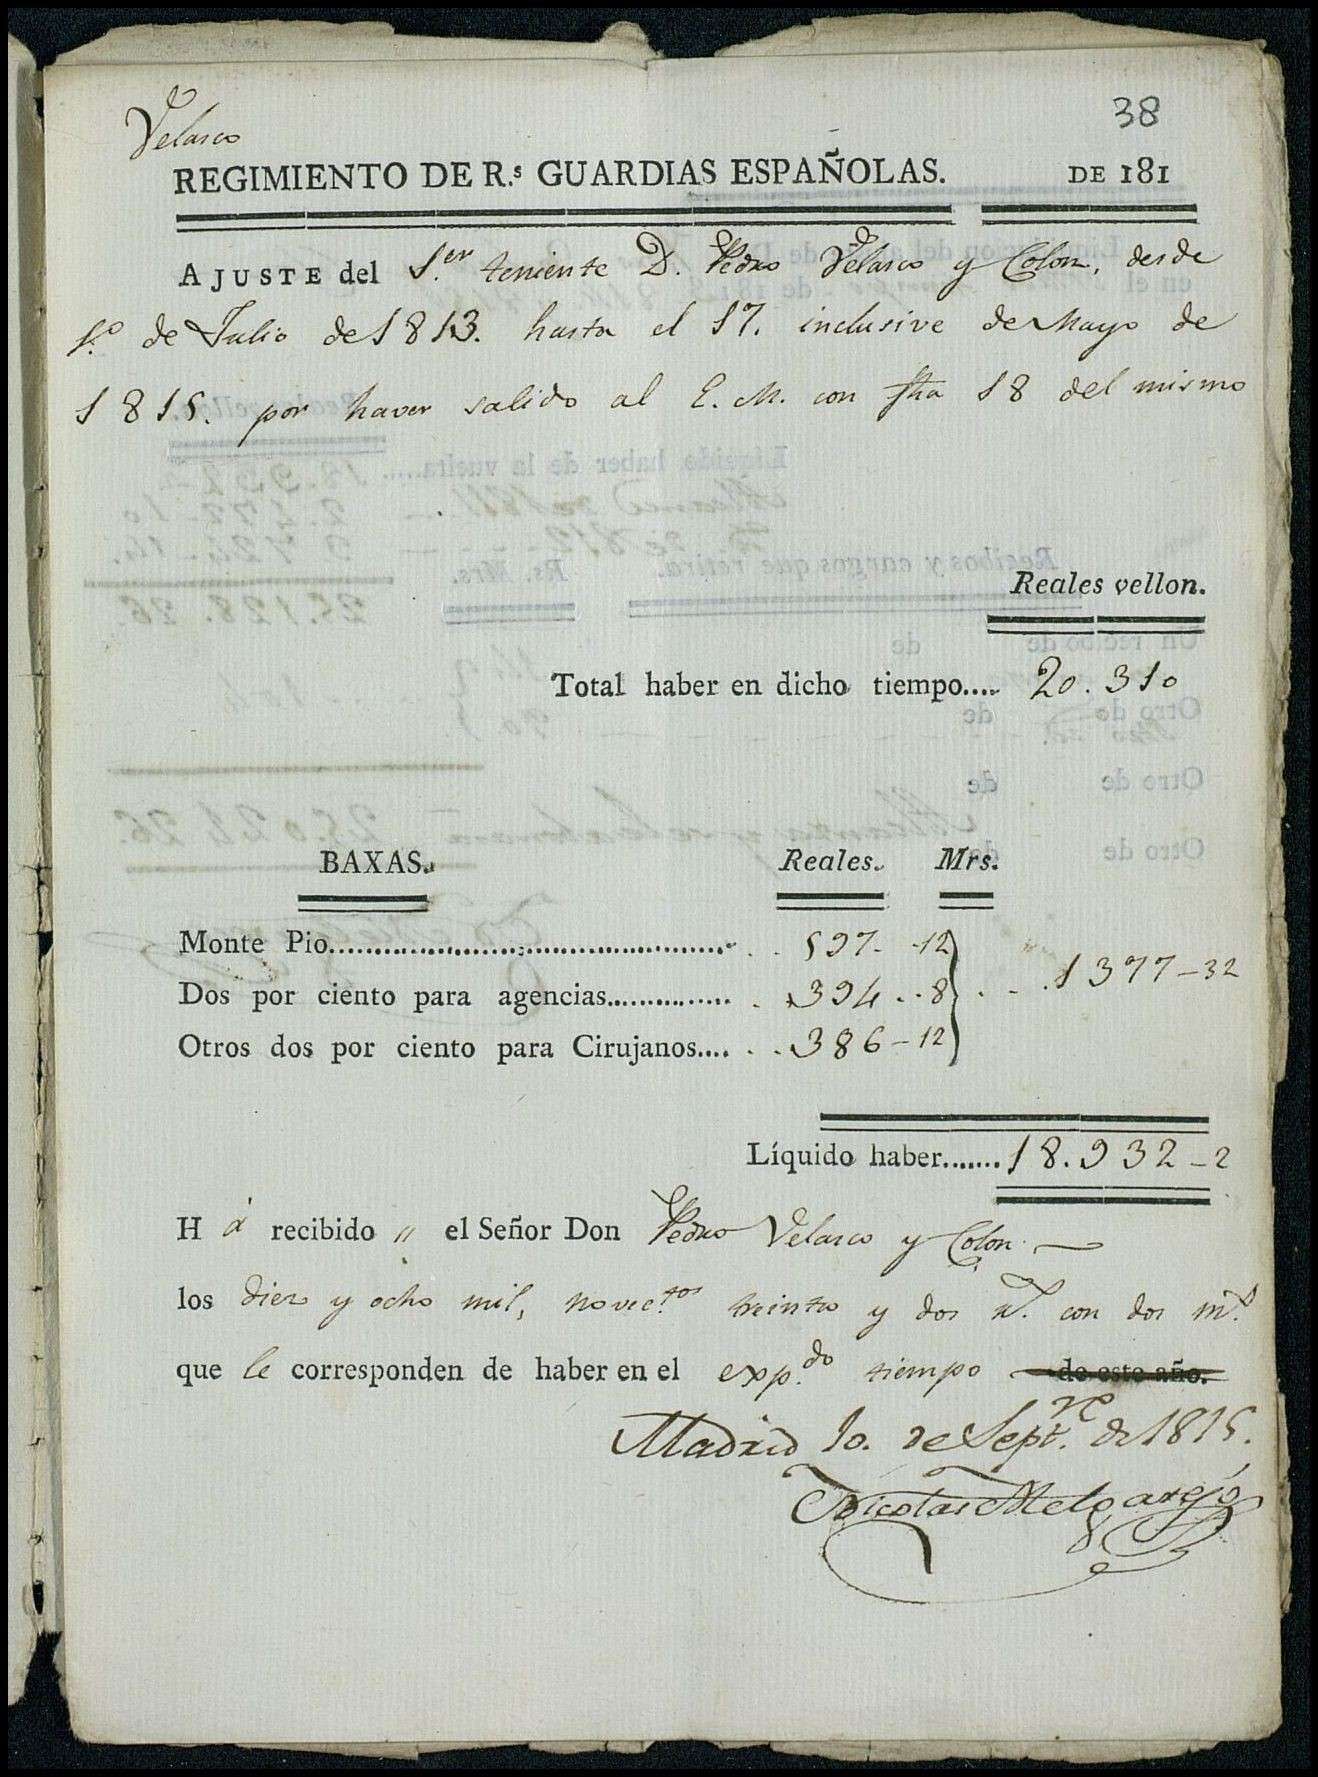 Velasco
38
REGIMIENTO DE R.s GUARDIAS ESPAÑOLAS. DE 181
AJUSTE del 1.er teniente D. Pedro Velasco y Colon, desde
1.o de Julio de 1813. hasta el 17. inclusive de Mayo de
1815. por haver salido al E. M. con fha 18 del mismo
Reales vellon.
Total haber en dicho tiempo.... 20.310
BAXAS. Reales. Mrs.
Monte Pio........ 597 - 12
Dos por ciento para agencias........ 394 .. 8 } . . . 1377 - 32
Otros dos por ciento para Cirujanos.... 386 - 12
Líquido haber....... 18.932 - 2
H á recibido " el Señor Don Pedro Velasco y Colon
los diez y ocho mil, novec.tos treinta y dos r.s con dos m.s
que le corresponden de haber en el exp.do tiempo de este año.
Madrid 10. de Sept.re de 1815.
Nicolas Melgarejo